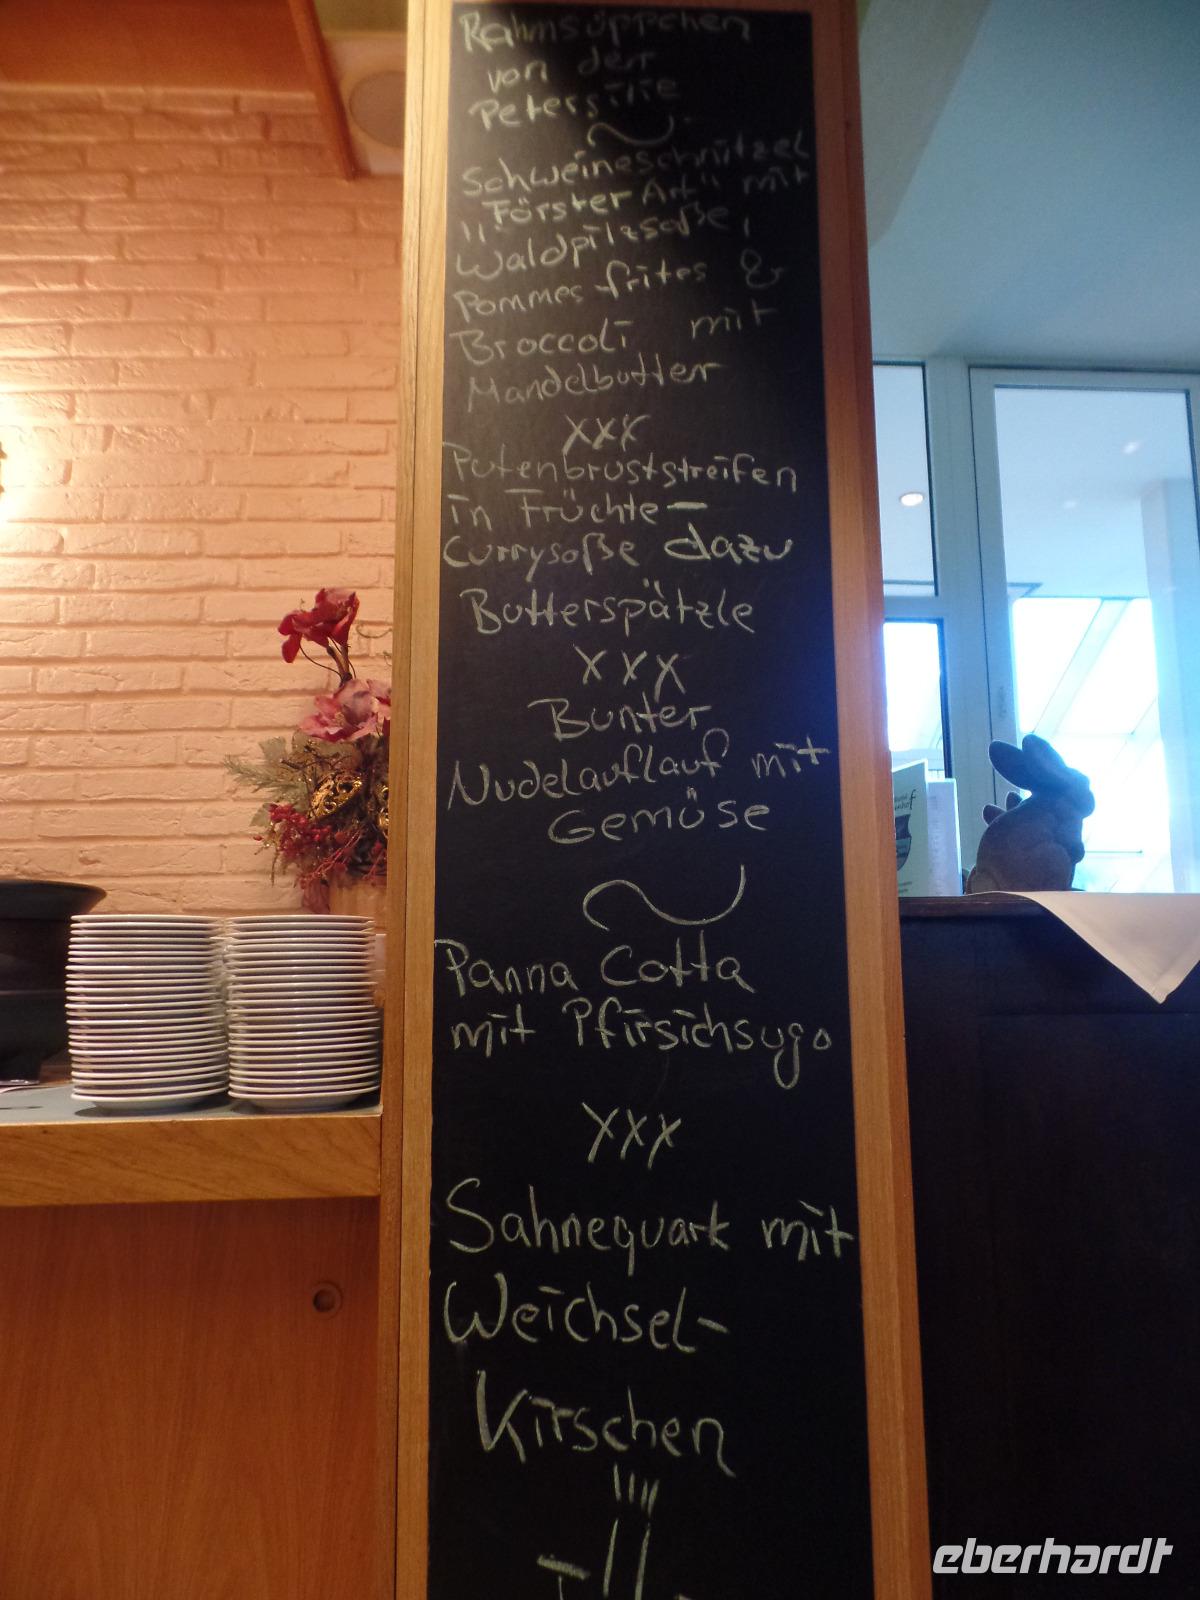 Rahmsüppchen
von der
Petersilie
Schweineschnitzel
"Förster Art" mit
Waldpilzsoße,
Pommes frites &
Broccoli mit
Mandelbutter
XXX
Putenbruststreifen
in Früchte-
Currysoße dazu
Butterspätzle
XXX
Bunter
Nudelauflauf mit
Gemüse
Panna Cotta
mit Pfirsichsugo
XXX
Sahnequark mit
Weichsel-
Kirschen
eberhardt